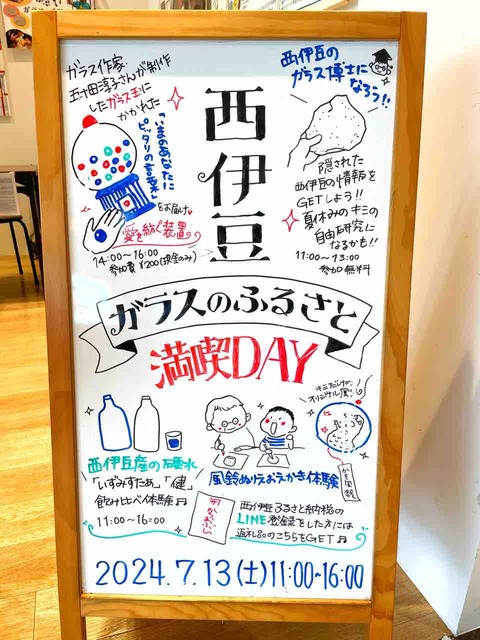 ガラス作家
五十田淳子さんが制作
したガラス玉に
かかれた
「いまのあなたに
ピッタリの言葉」
をお届け
愛を紡ぐ装置
14:00～16:00
参加費 ¥200(現金のみ)
西伊豆
西伊豆の
ガラス博士に
なろう!!
隠された
西伊豆の情報を
GETしよう!!
夏休みのキミの
自由研究に
なるかも!!
11:00～13:00
参加無料
ガラスのふるさと
満喫DAY
西伊豆産の硬水
「いずみずたあ」「健」
飲み比べ体験♬
11:00～16:00
キミだけの
オリジナル風鈴
風鈴ぬりえおえかき体験
西伊豆ふるさと納税の
LINE登録をした方には
返礼品のこちらをGET♬
2024.7.13(土)11:00~16:00